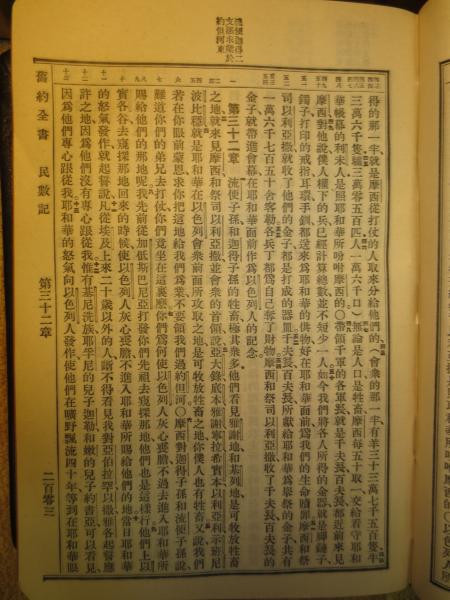 流便迦得二
支派求業於
約但河東
得的那一半、就是摩西從打仗的人取來分給他們的、(會衆的那一半有羊三十三萬七千五百隻牛
三萬六千隻驢三萬零五百匹人一萬六千口)無論是人口是牲畜摩西每五十取一交給看守耶和
華帳幕的利未人是照耶和華所吩咐摩西的○帶領千軍的各軍長就是千夫長百夫長都近前來見
摩西對他說僕人權下的兵已經計算總數並不短少一人如今我們將各人所得的金器就是脚鏈子
鐲子打印的戒指耳環手釧都送來爲耶和華的供物好在耶和華面前爲我們的生命贖罪摩西和祭
司以利亞撒就收了他們的金子都是打成的器皿千夫長百夫長所獻給耶和華爲舉祭的金子共有
一萬六千七百五十舍客勒各兵丁都爲自己奪了財物摩西和祭司以利亞撒收了千夫長百夫長的
金子就帶進會幕在耶和華面前作爲以色列人的記念
第三十二章 流便子孫和迦得子孫的牲畜極其衆多他們看見雅謝地和基列地是可牧放牲畜
之地就來見摩西和祭司以利亞撒並會衆的首領說亞大錄底本雅謝寧拉希實本以利亞利示班尼
波比穩就是耶和華在以色列會衆前面所攻取之地是可牧放牲畜之地你僕人也有牲畜又說我們
若在你眼前蒙恩求你把這地給我們爲業不要領我們過約但河○摩西對迦得子孫和流便子孫說
難道你們的弟兄去打仗你們竟坐在這裏麽你們爲何使以色列人灰心喪膽不過去進入耶和華所
賜給他們的那地呢我先前從加低斯巴尼亞打發你們先祖去窺探那地他們也是這樣行他們上以
實各谷去窺探那地回來的時候使以色列人灰心喪膽不進入耶和華所賜給他們的地當日耶和華
的怒氣發作就起誓說凡從埃及上來二十歲以外的人斷不得看見我對亞伯拉罕以撒雅各起誓應
許之地因爲他們沒有專心跟從我惟有基尼洗族耶孚尼的兒子迦勒和嫩的兒子約書亞可以看見
因爲他們專心跟從我耶和華的怒氣向以色列人發作使他們在曠野飄流四十年等到在耶和華眼
舊約全書 民數記 第三十二章 二百零三